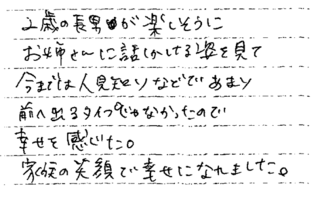 2歳の長男が楽しそうに
お姉さんに話しかける姿を見て
今までは人見知りなどであまり
前へ出るタイプじゃなかったので
幸せを感じた。
家族の笑顔で幸せになれました。